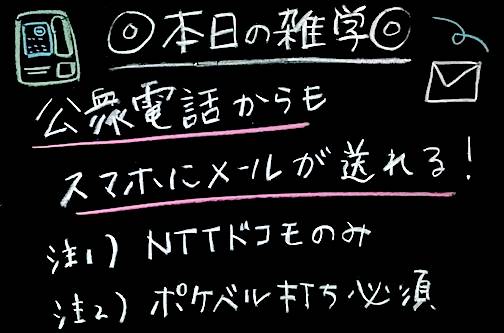 ◎本日の雑学◎
公衆電話からも
スマホにメールが送れる!
注1)NTTドコモのみ
注2)ポケベル打ち必須